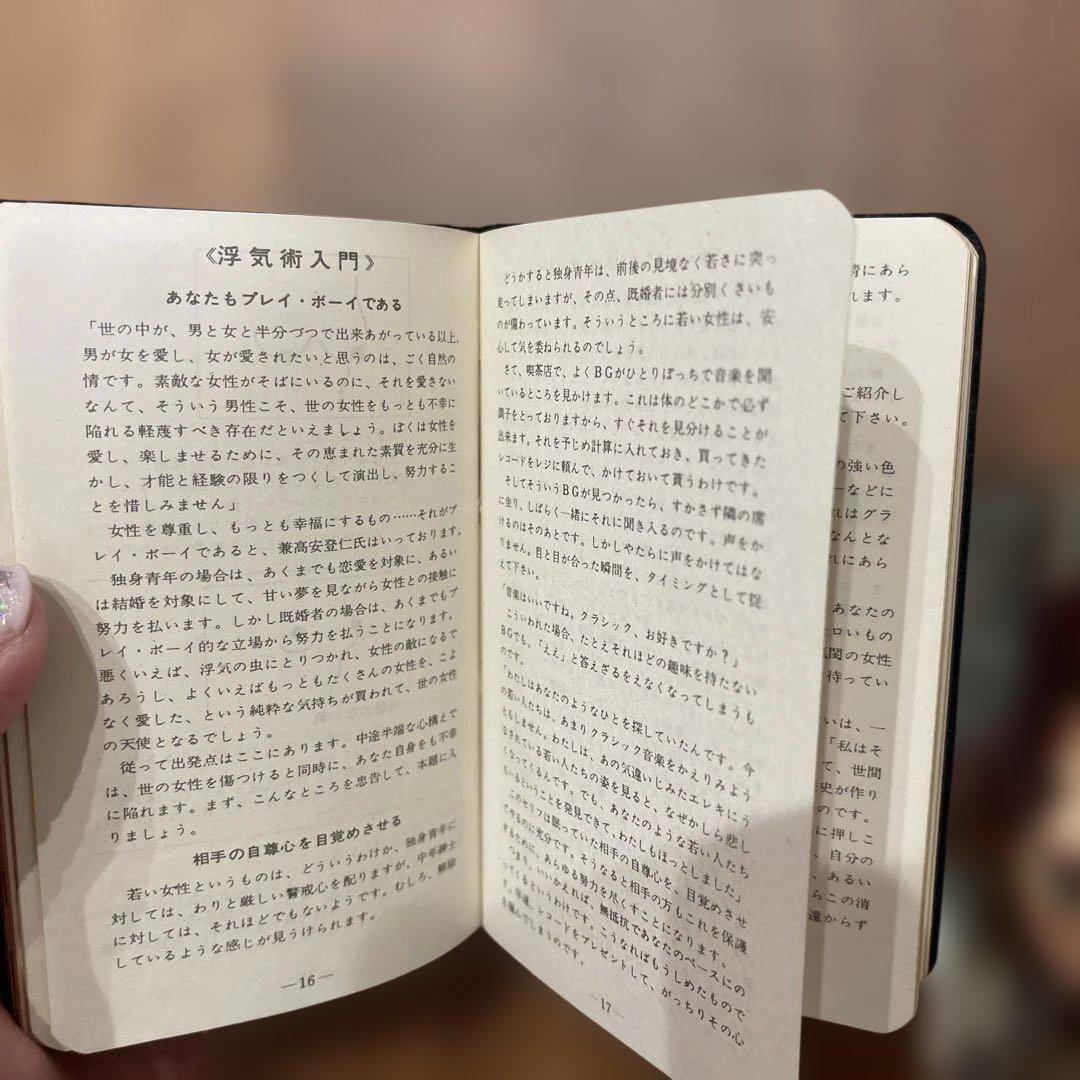 《浮気術入門》
あなたもプレイ・ボーイである
「世の中が、男と女と半分づつで出来あがっている以上、
男が女を愛し、女が愛されたいと思うのは、ごく自然の
情です。素敵な女性がそばにいるのに、それを愛さない
なんて、そういう男性こそ、世の女性をもっとも不幸に
陥れる軽蔑すべき存在だといえましょう。ぼくは女性を
愛し、楽しませるために、その恵まれた素質を充分に生
かし、才能と経験の限りをつくして演出し、努力するこ
とを惜しみません」
女性を尊重し、もっとも幸福にするもの……それがプ
レイ・ボーイであると、兼高安登仁氏はいっております。
独身青年の場合は、あくまでも恋愛を対象に、あるい
は結婚を対象にして、甘い夢を見ながら女性との接触に
努力を払います。しかし既婚者の場合は、あくまでもプ
レイ・ボーイ的な立場から努力を払うことになります。
悪くいえば、浮気の虫にとりつかれ、女性の敵になるで
あろうし、よくいえばもっともたくさんの女性を、こよ
なく愛した、という純粋な気持ちが買われて、世の女性
の天使となるでしょう。
従って出発点はここにあります。中途半端な心構えで
は、世の女性を傷つけると同時に、あなた自身をも不幸
に陥れます。まず、こんなところを忠告して、本題に入
りましょう。
相手の自尊心を目覚めさせる
若い女性というものは、どういうわけか、独身青年に
対しては、わりと厳しい警戒心を配りますが、中年紳士
に対しては、それほどでもないようです。むしろ、解除
しているような感じが見うけられます。
—16—
どうかすると独身青年は、前後の見境なく若さに突っ
走ってしまいますが、その点、既婚者には分別くさいも
のが備わっています。そういうところに若い女性は、安
心して気を委ねられるのでしょう。
さて、喫茶店で、よくBGがひとりぼっちで音楽を聞
いているところを見かけます。これは体のどこかで必ず
調子をとっておりますから、すぐそれを見分けることが
出来ます。それを予じめ計算に入れておき、買ってきた
レコードをレジに頼んで、かけておいて貰うわけです。
そしてそういうBGが見つかったら、すかさず隣の席
に坐り、しばらく一緒にそれに聞き入るのです。声をか
けるのはそのあとです。しかしやたらに声をかけてはな
りません。目と目が合った瞬間を、タイミングとして捉
えて下さい。
「音楽はいいですね。クラシック、お好きですか？」
こういわれた場合、たとえそれほどの趣味を持たない
BGでも、「ええ」と答えざるをえなくなってしまうも
のです。
「わたしはあなたのようなひとを探していたんです。今
の若い人たちは、あまりクラシック音楽をかえりみよう
ともしません。わたしは、あの気違いじみたエレキにう
なされている若い人たちの姿を見ると、なぜかしら悲し
くなってくるんです。でも、あなたのような若い人たち
もいるということを発見できて、わたしもほっとしました」
このセリフは眠っていた相手の自尊心を、目覚めさせ
てやるのに充分です。そうなると相手の方もこれを保護
するために、あらゆる努力を尽くすことになります。
つまり、いいかえれば、無抵抗であなたのペースにの
ってくるというわけです。こうなればもうしめたもので
す。早速、レコードをプレゼントして、がっちりその心
を掴んでしまうのです。
—17—
情にあら
れます。
ご紹介し
て下さい。
の強い色
ーなどに
れはグラ
なんとな
れにあら
あなたの
エロいもの
の女性
待ってい
いは、一
「私はそ
て、世間
史が作り
のです。
に押しこ
、自分の
、あるい
らこの消
遠からず